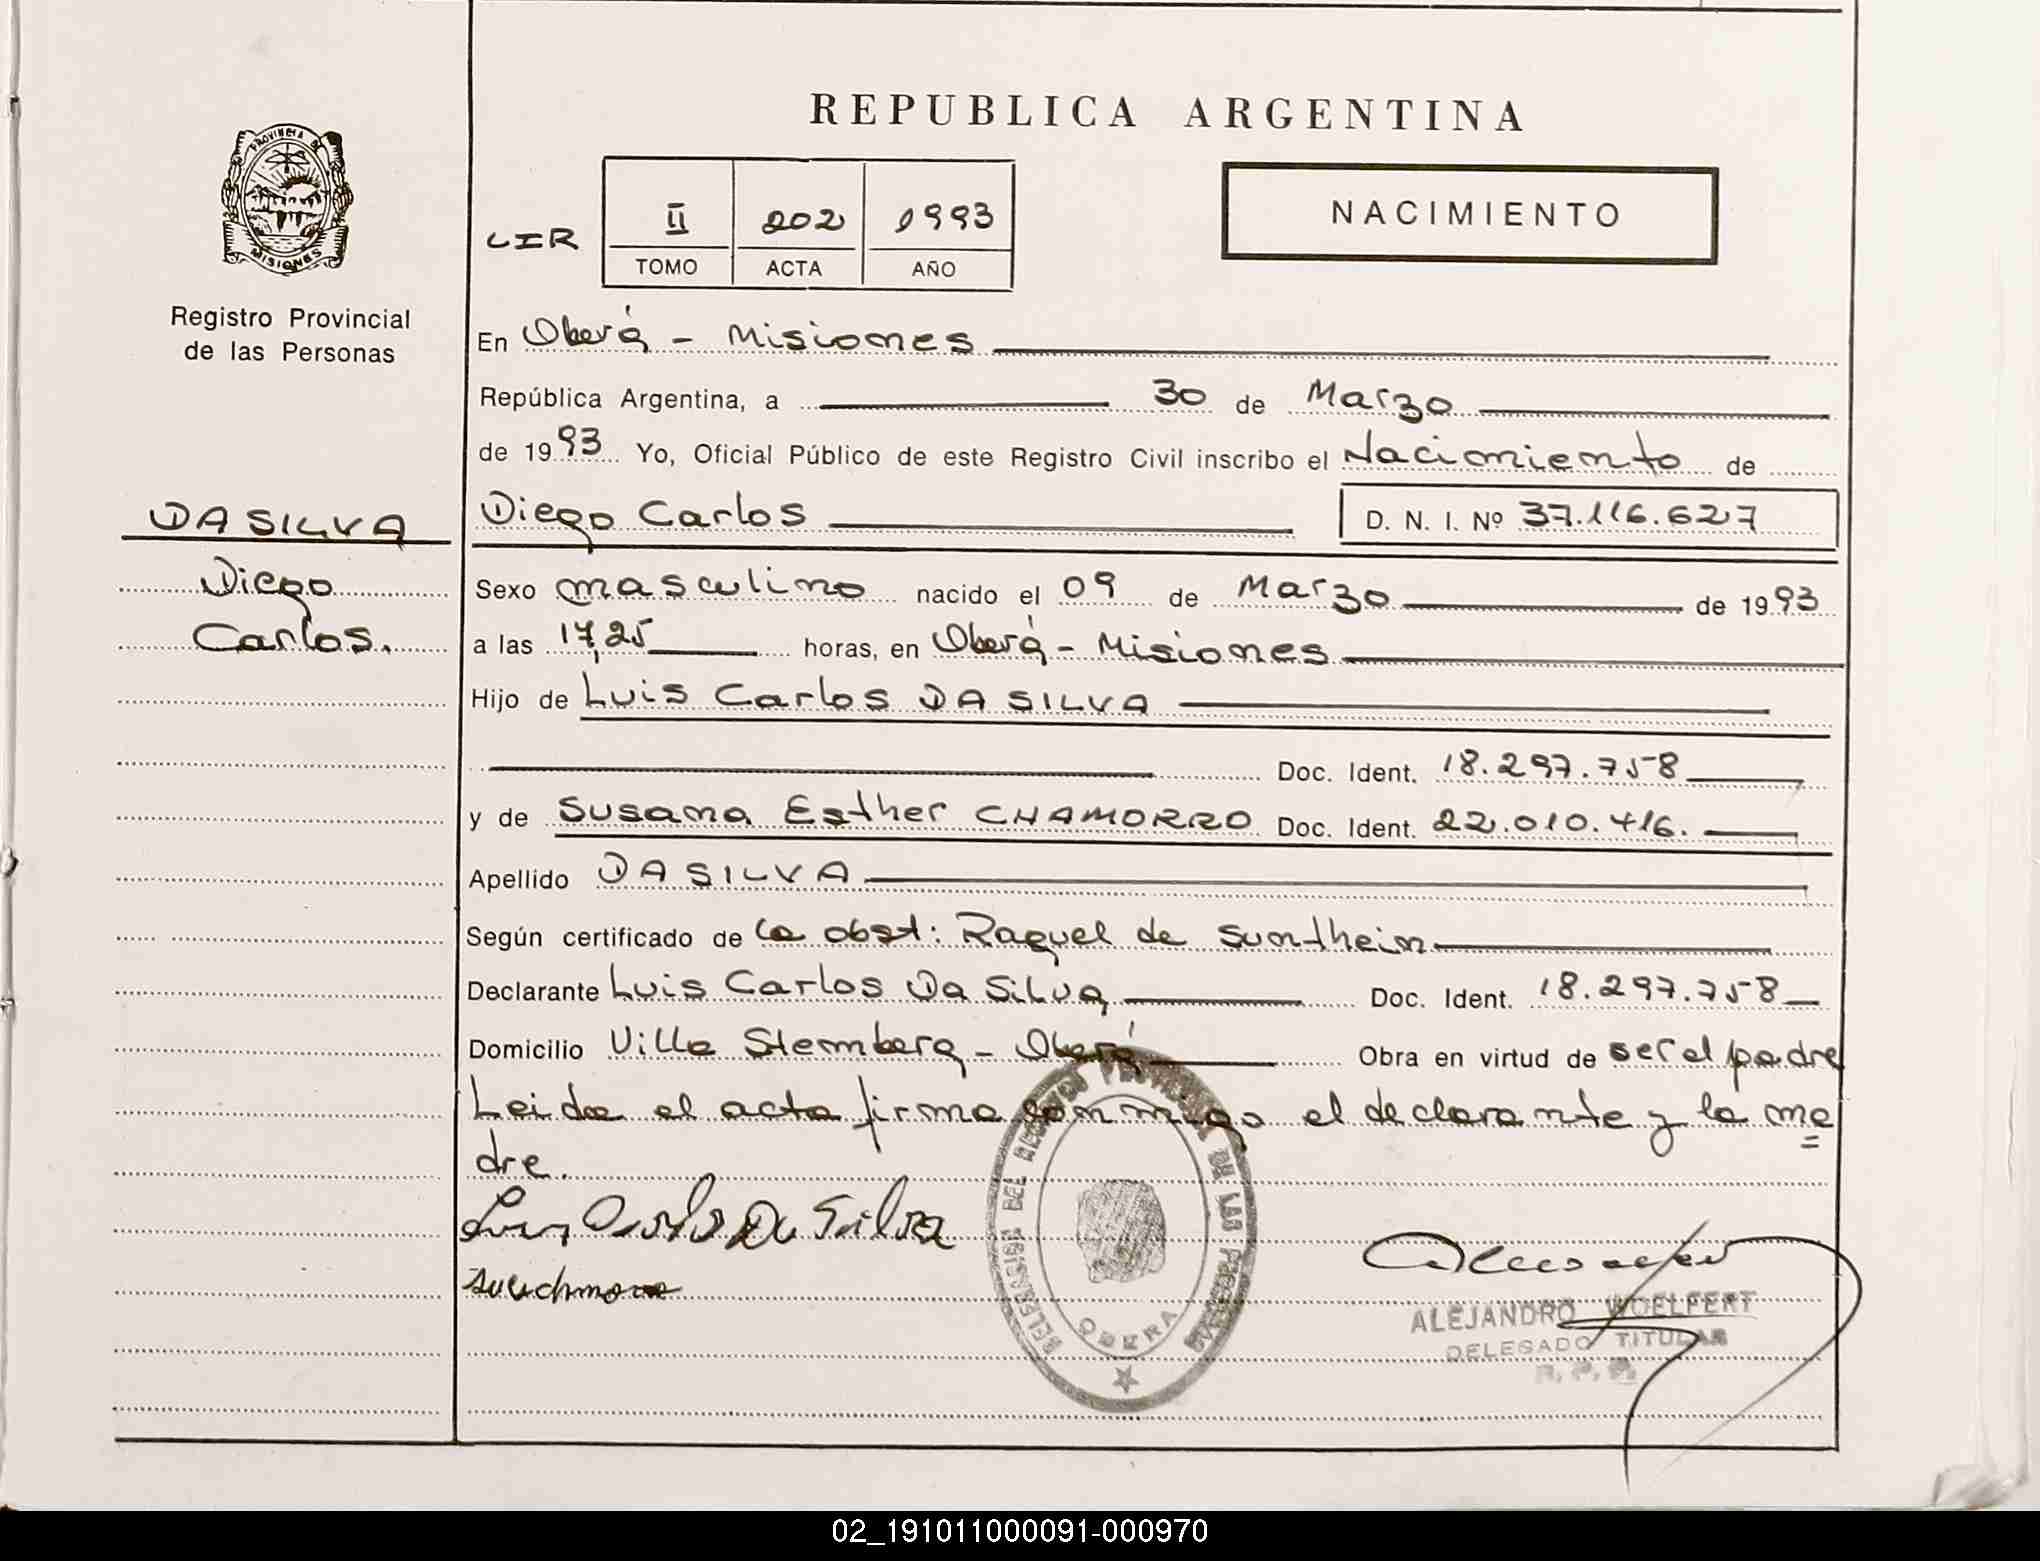 REPUBLICA ARGENTINA
PROVINCIA DE
MISIONES
Registro Provincial
de las Personas
LIR
II 202 1993
TOMO ACTA AÑO
NACIMIENTO
En Oberá - Misiones
República Argentina, a 30 de Marzo
de 1993 Yo, Oficial Público de este Registro Civil inscribo el Nacimiento de
DA SILVA
Diego
Carlos.
Diego Carlos D. N. I. Nº 37.116.627
Sexo masculino nacido el 09 de Marzo de 1993
a las 17,25 horas, en Oberá - Misiones
Hijo de Luis Carlos DA SILVA
Doc. Ident. 18.297.758
y de Susana Esther CHAMORRO Doc. Ident. 22.010.416.
Apellido DA SILVA
Según certificado de la obst: Raquel de Suntheim
Declarante Luis Carlos Da Silva Doc. Ident. 18.297.758
Domicilio Villa Stemberg - Oberá Obra en virtud de ser el padre
Leida el acta firma conmigo el declarante y la ma
dre.
Luis Carlos Da Silva
DELEGACION DEL REGISTRO PROVINCIAL DE LAS PERSONAS
OBERA
ALEJANDRO WOELFERT
DELEGADO TITULAR
R. P. P.
02_191011000091-000970